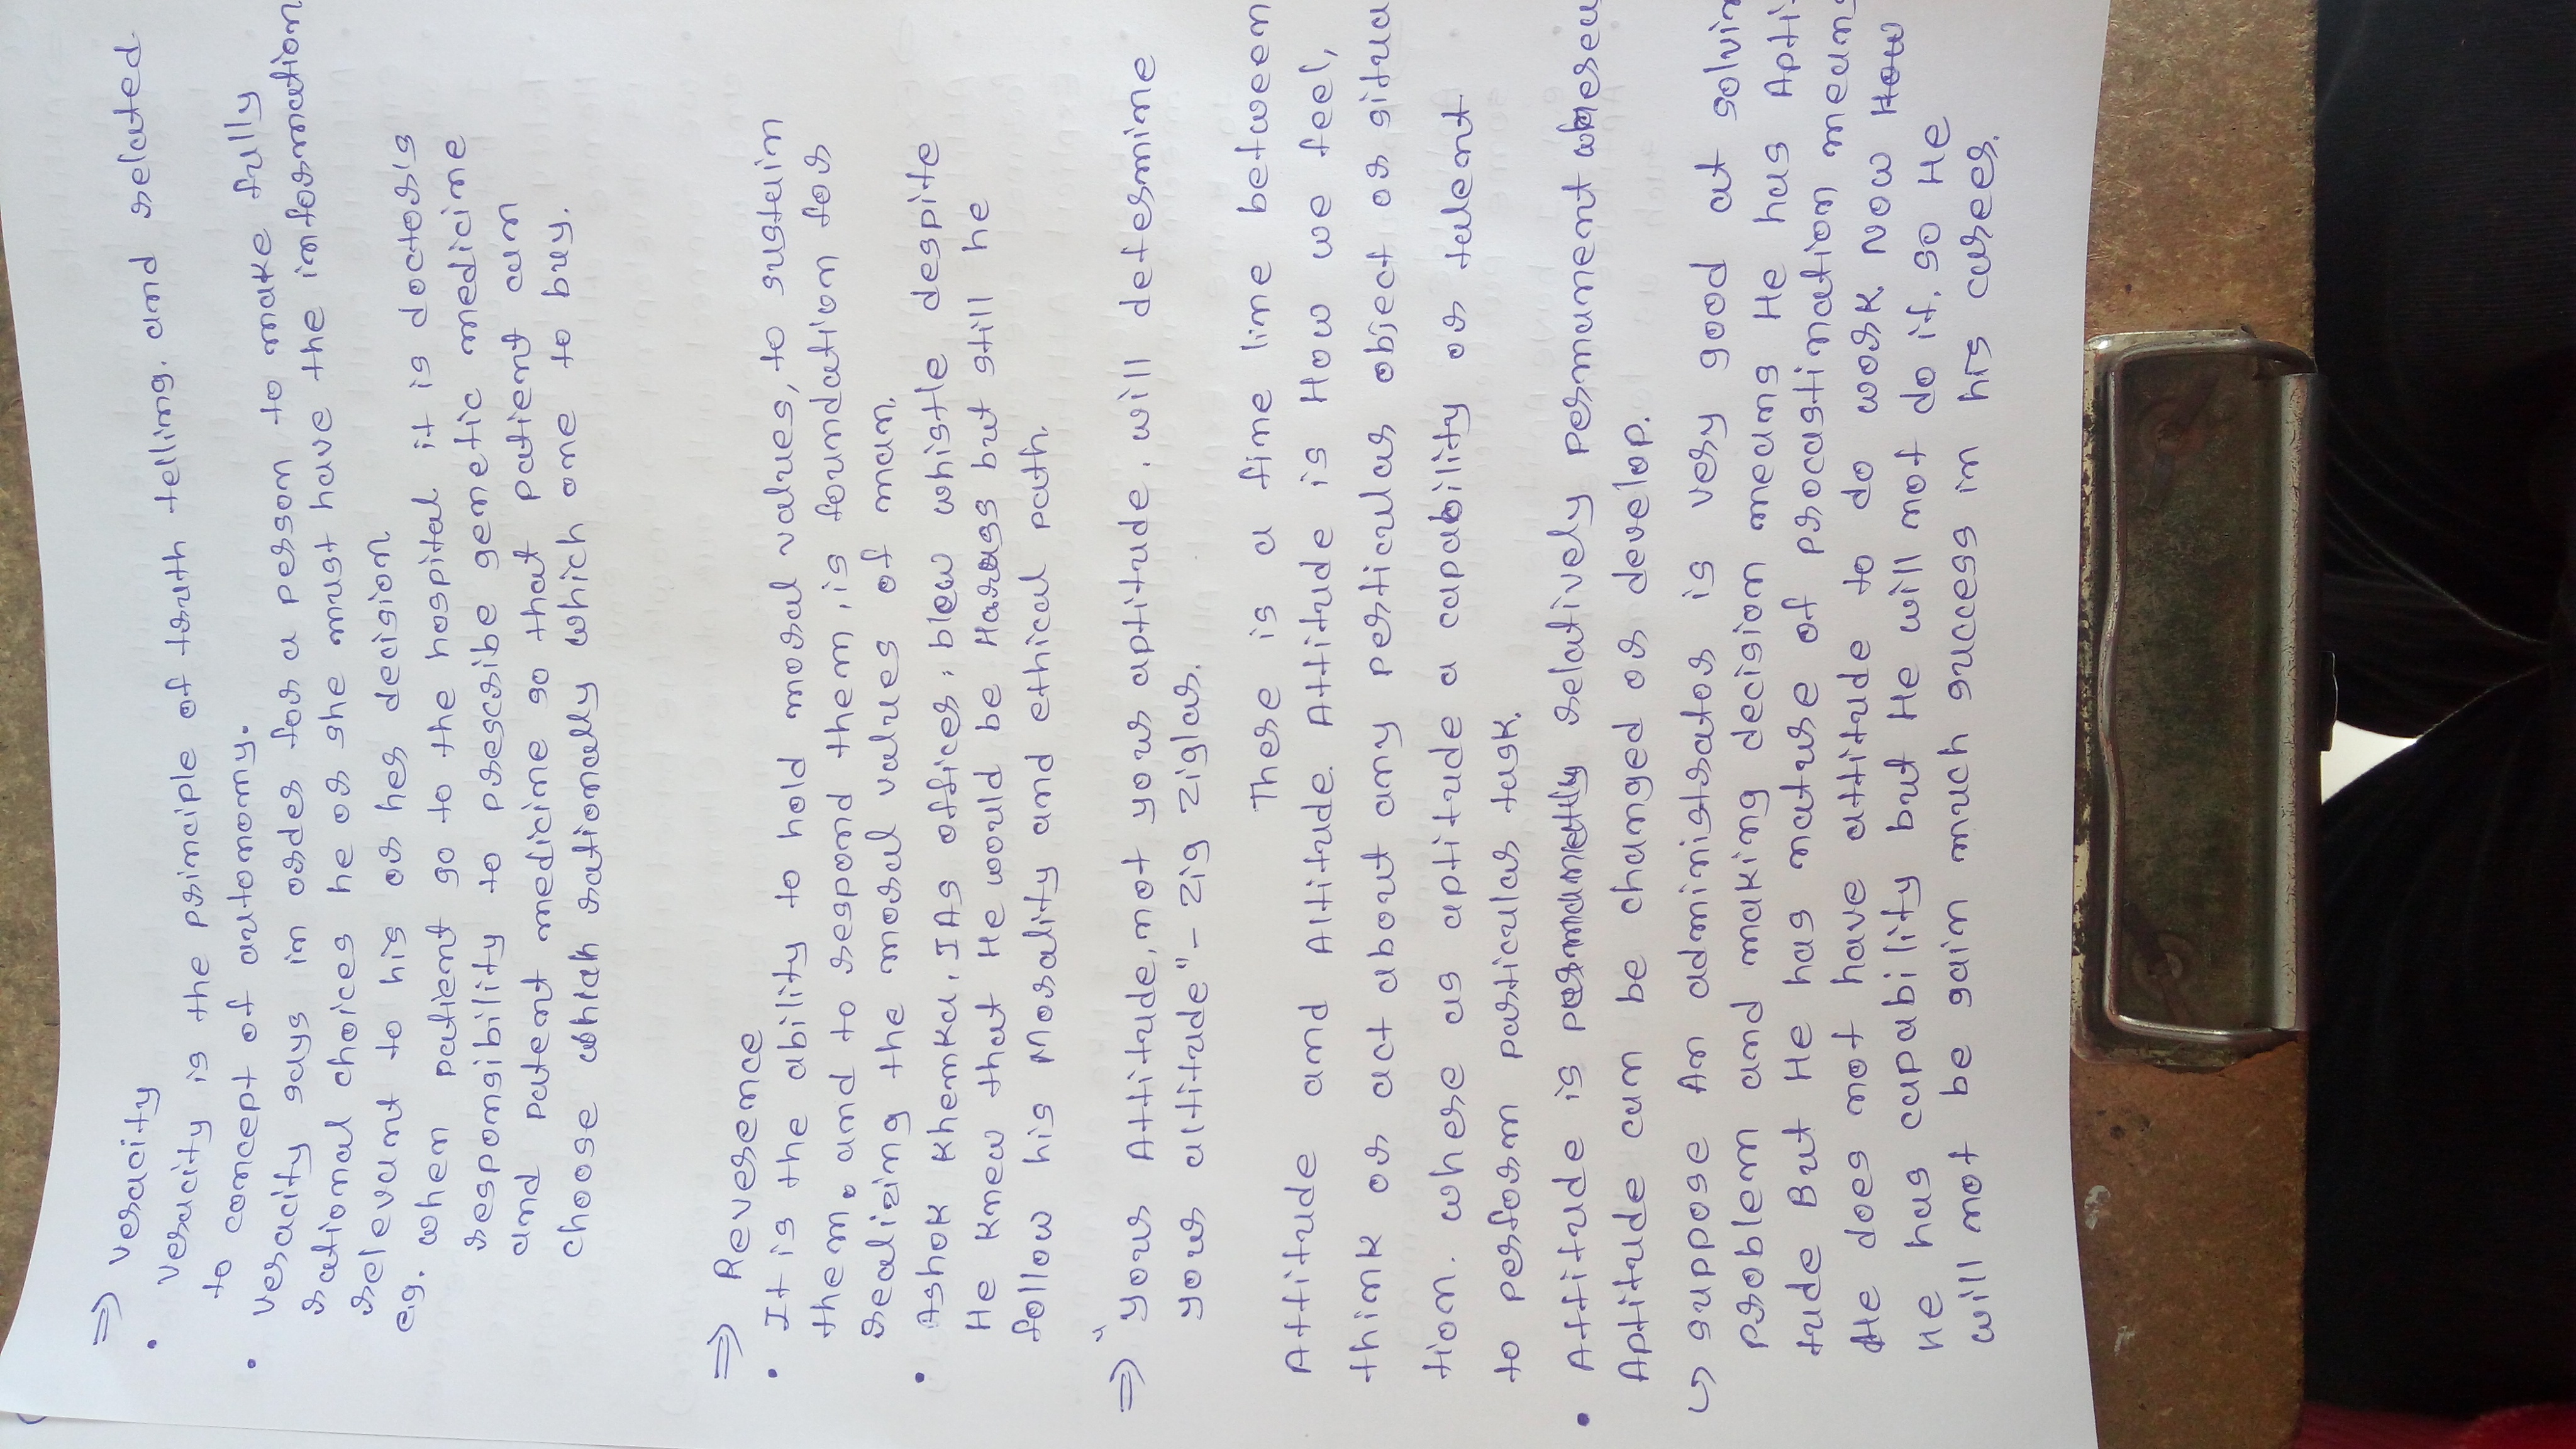 ⇒ Veracity
• Veracity is the principle of truth telling. and related
to concept of autonomy.
• Veracity says in order for a person to make fully
rational choices he or she must have the information
relevant to his or her decision.
eg. when patient go to the hospital it is doctor's
responsibility to prescribe genetic medicine
and patent medicine so that patient can
choose which rationally which one to buy.
⇒ Reverence
• It is the ability to hold moral values, to sustain
them. and to respond them, is foundation for
realizing the moral values of man.
• Ashok Khemka, IAS officer, blow whistle despite
He knew that He would be Harass but still he
follow his Morality and ethical path.
⇒ "your Attitude, not your aptitude, will determine
your altitude" - zig ziglar.
There is a fine line between
Attitude and Altitude. Attitude is How we feel,
think or act about any perticular object or situa
tion. where as aptitude a capability or talent
to perform particular task.
• Attitude is relatively permanent whereas
Aptitude can be changed or develop.
↳ suppose An administrator is very good at solvin
problem and making decision means He has Apti-
tude But He has nature of procastination means
He does not have attitude to do work. Now How
He has capability but He will not do it. so He
will not be gain much success in his career.